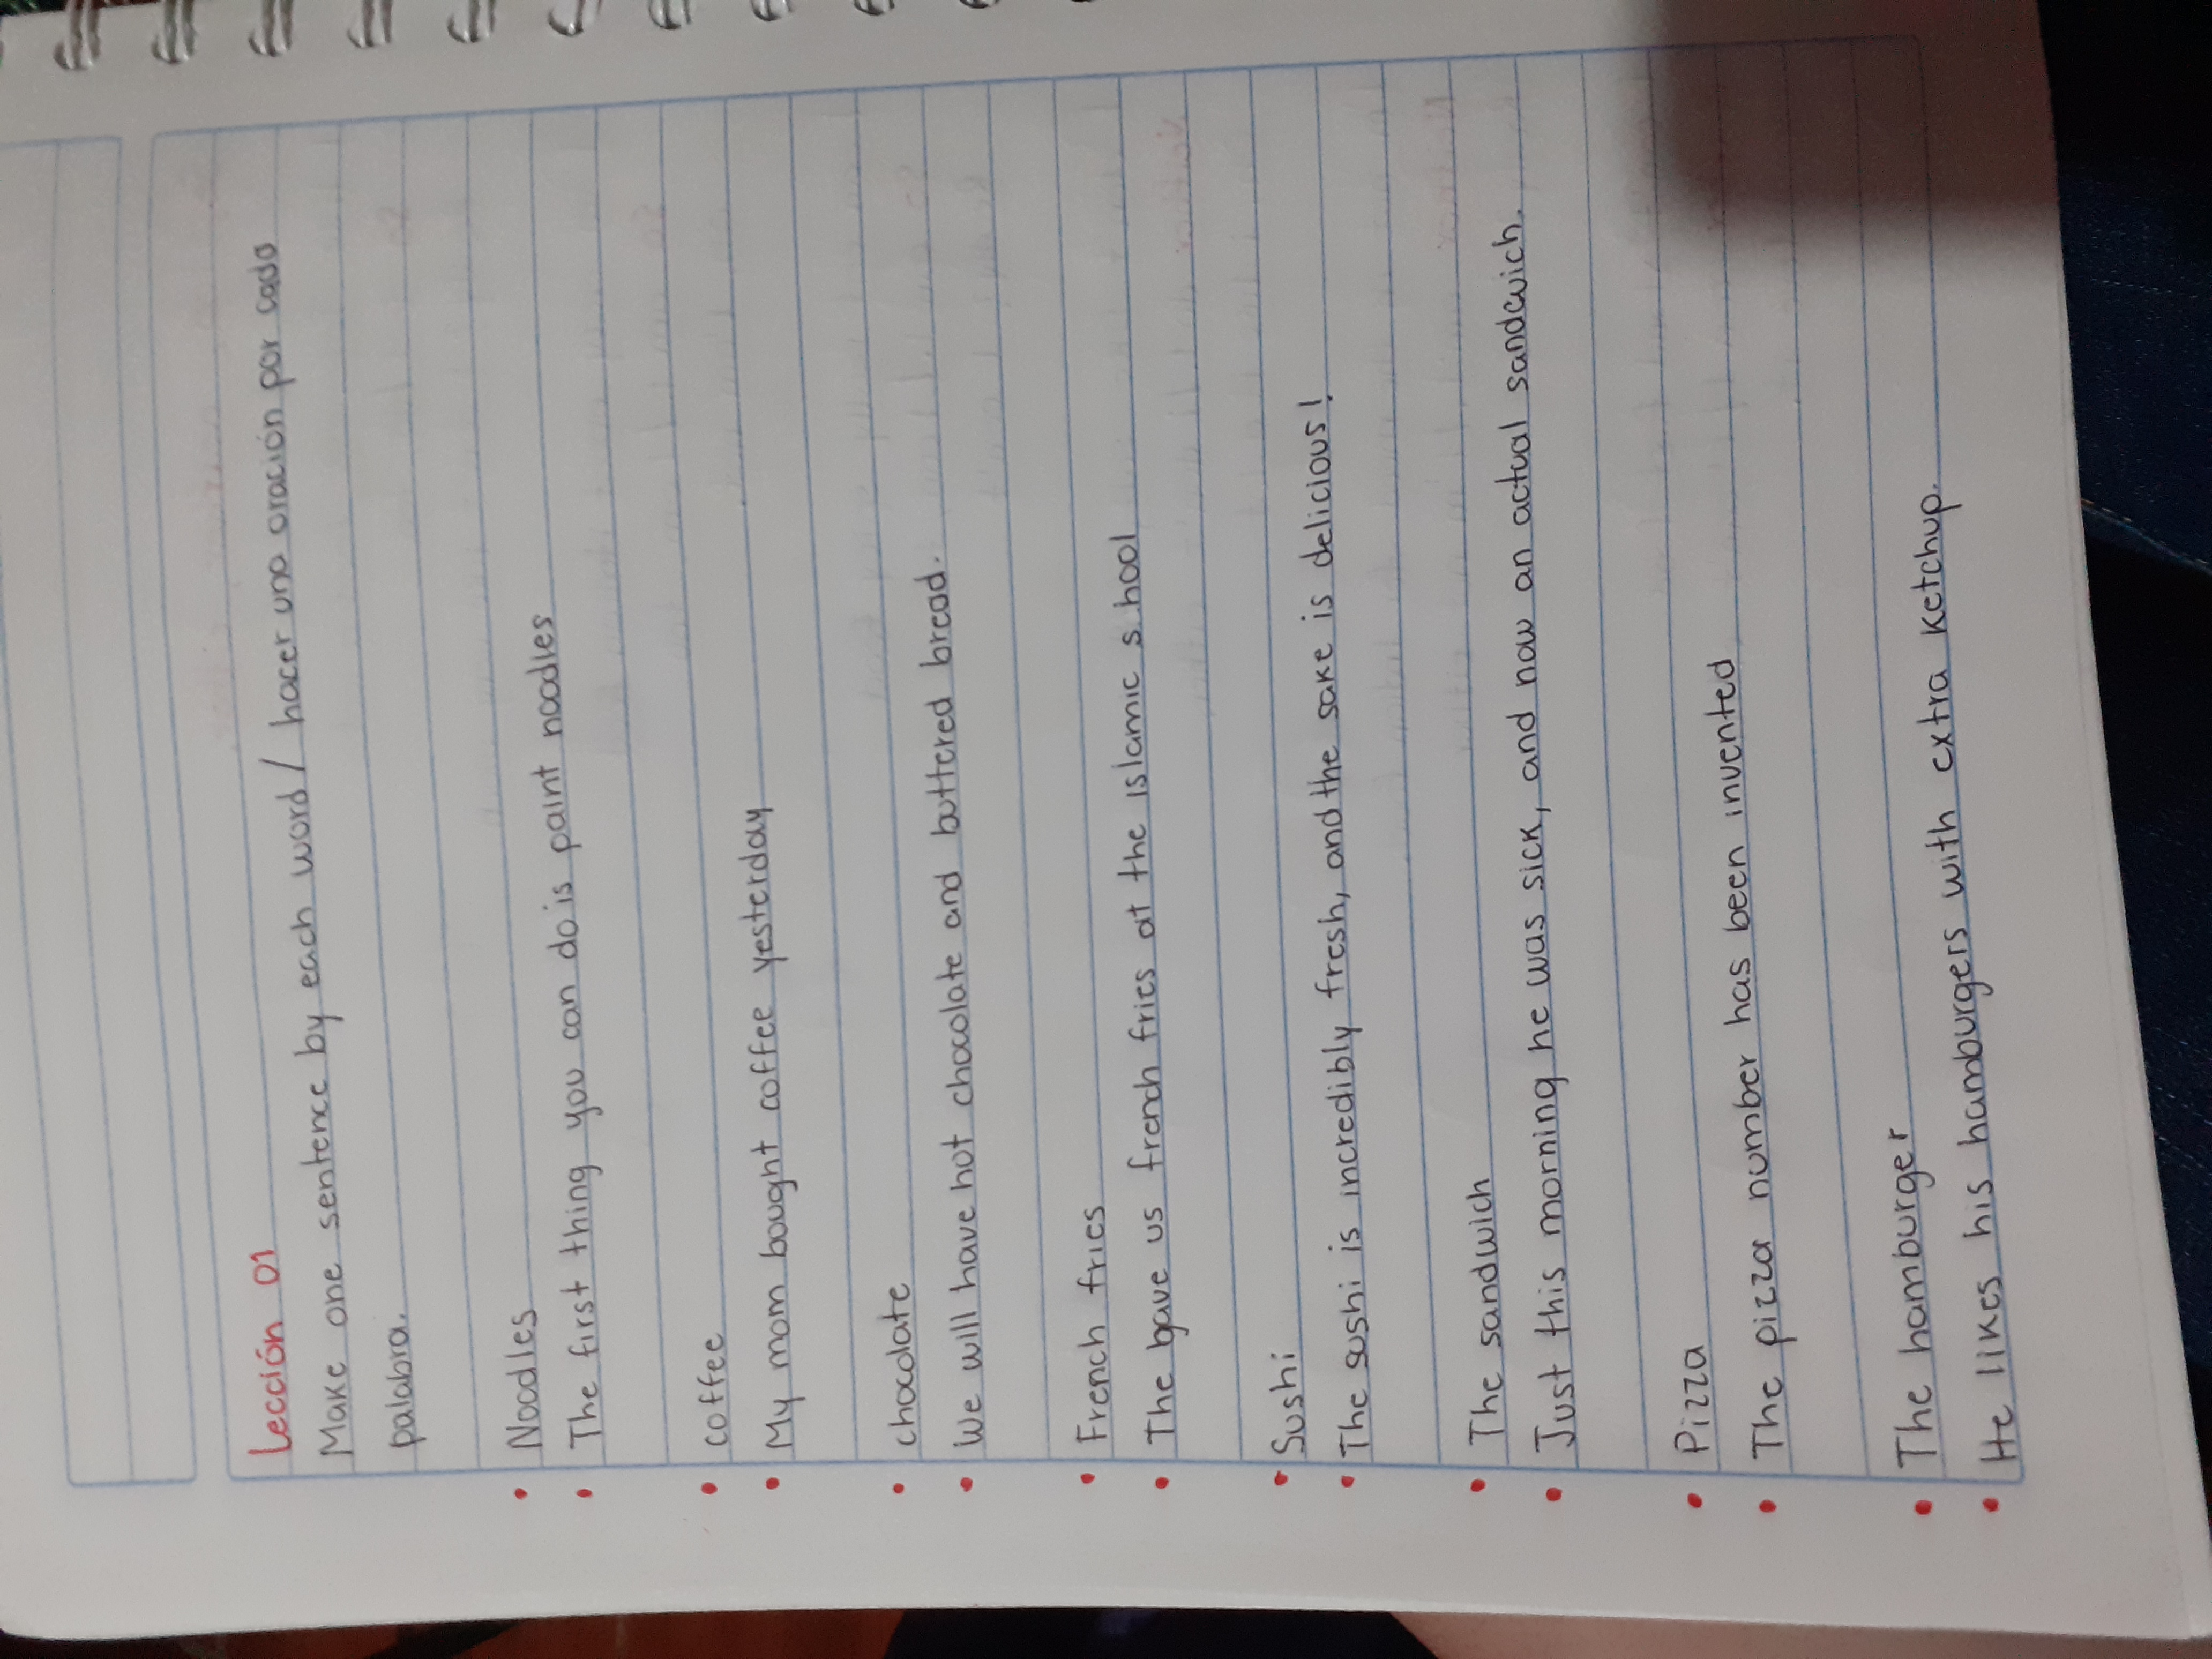 Lección 01
Make one sentence by each word / hacer una oración por cada
palabra.
• Noodles
• The first thing you can do is paint noodles
• coffee
• My mom bought coffee yesterday
• chocolate
• We will have hot chocolate and buttered bread.
• French fries
• The gave us french fries at the islamic s hool
• Sushi
• The sushi is incredibly fresh, and the sake is delicious!
• The sandwich
• Just this morning he was sick, and now an actual sandwich.
• Pizza
• The pizza number has been invented
• The hamburger
• He likes his hamburgers with extra ketchup.